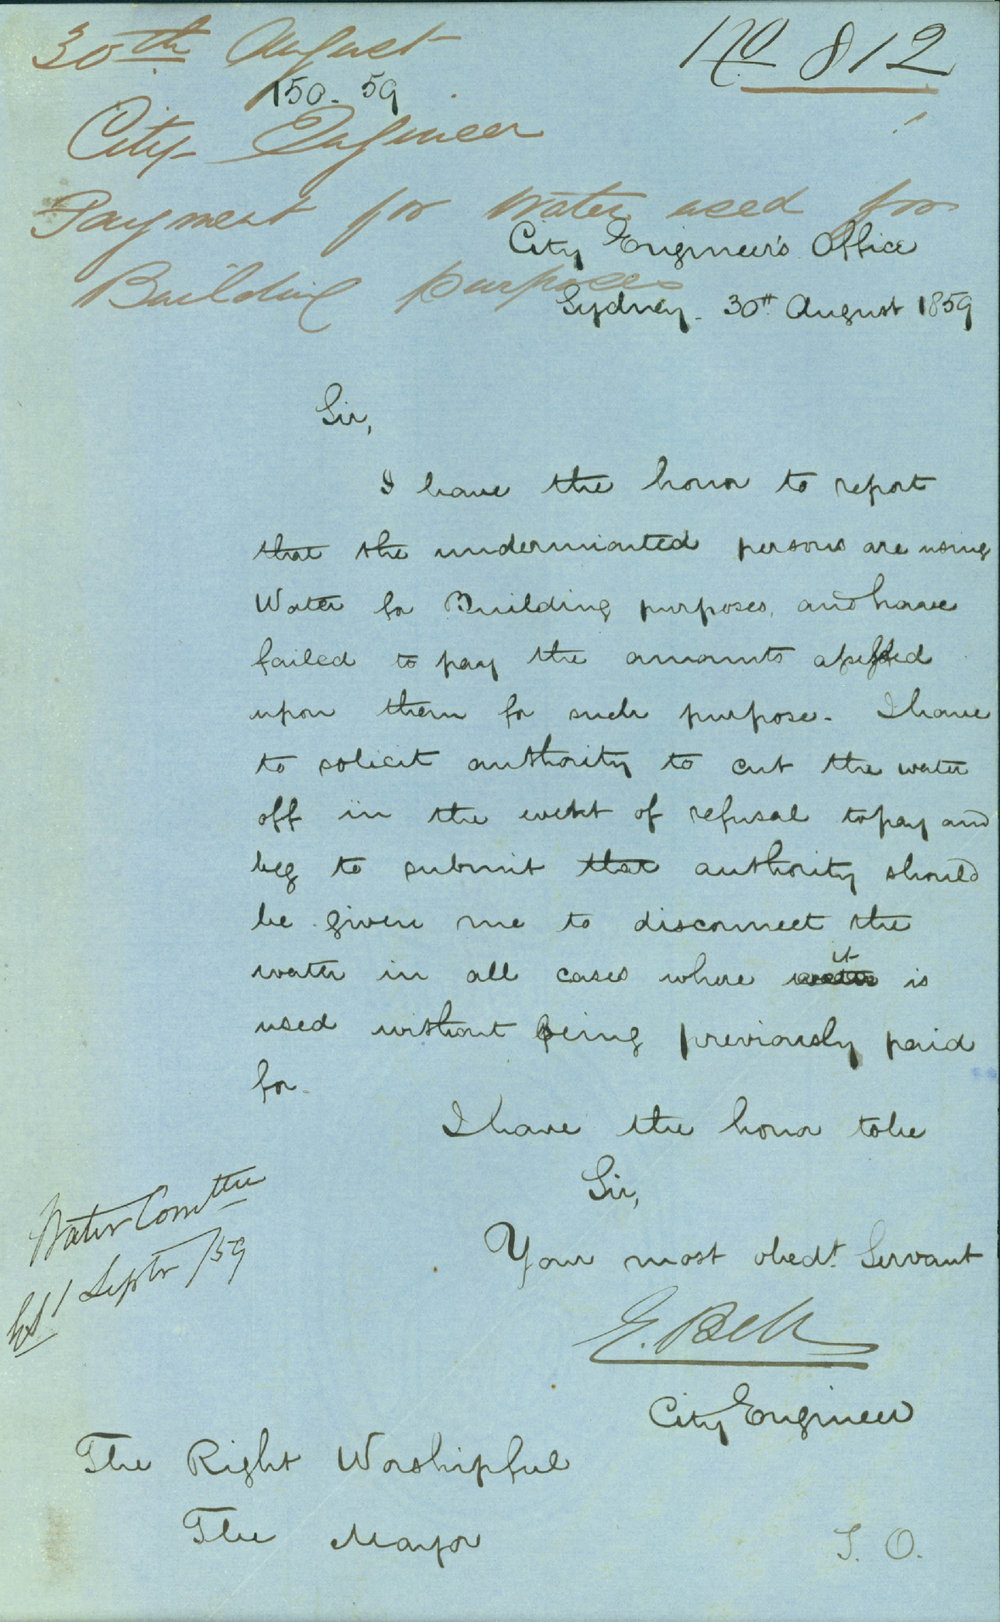 30th August
No 812
150.59
City Engineer
Payment for Water used for
Building purposes
City Engineer's Office
Sydney. 30th August 1859
Sir,
I have the honor to report
that the undermianted persons are using
Water for Building purposes, and have
failed to pay the amounts assessed
upon them for such purpose. I have
to solicit authority to cut the water
off in the event of refusal to pay and
beg to submit that authority should
be given me to disconnect the
water in all cases where it is
used without being previously paid
for.
I have the honor to be
Sir,
Your most obedt. Servant
E. Bell
City Engineer
Water Comttee
1 Septr /59
The Right Worshipful
The Mayor
T. O.